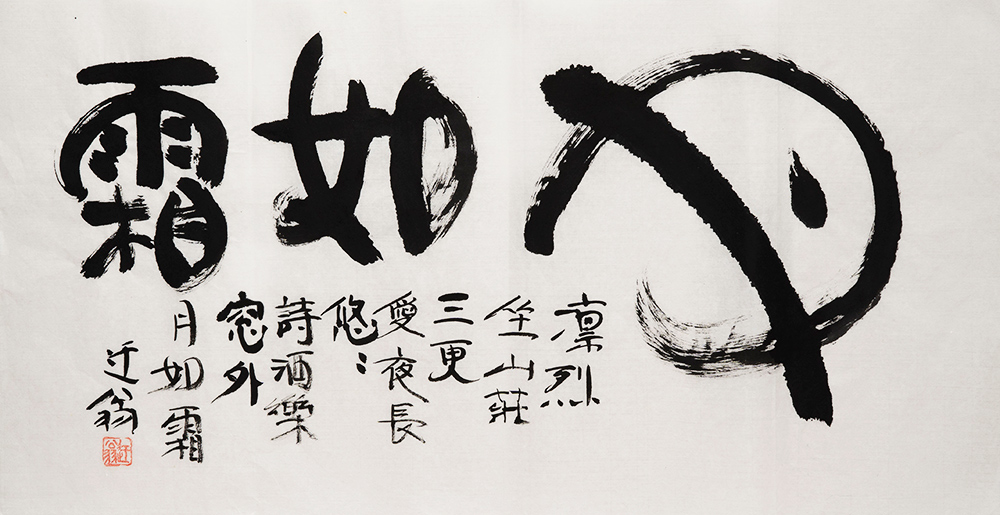 月如霜
凛烈
坐山莊
三更
愛夜長
悠〻
詩酒樂
窓外
月如霜
迂翁
迂翁